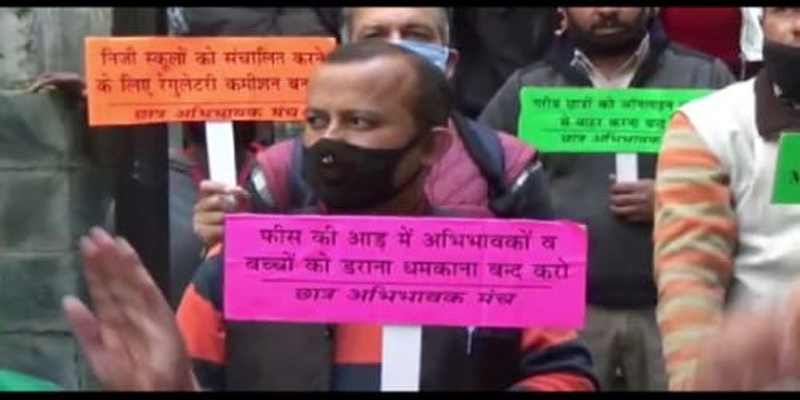 निजी स्कूलों को संचालित करने
के लिए रेगुलेटरी कमीशन
छात्र अभिभावक मंच
गरीब छात्रों को ऑनलाइन
से बाहर करना बन्द
छात्र अभिभावक
फीस की आड़ में अभिभावकों व
बच्चों को डराना धमकाना बन्द करो
छात्र अभिभावक मंच